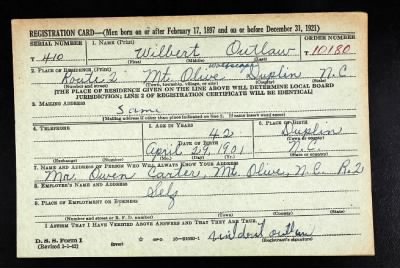 REGISTRATION CARD—(Men born on or after February 17, 1897 and on or before December 31, 1921)
SERIAL NUMBER 1. NAME (Print) ORDER NUMBER
T 410 Wilbert Outlaw T 10180
(First) (Middle) (Last)
2. PLACE OF RESIDENCE (Print)
Route 2 Mt. Olive Duplin N.C.
(Number and street) (Town, township, village, or city) (County) (State)
[THE PLACE OF RESIDENCE GIVEN ON THE LINE ABOVE WILL DETERMINE LOCAL BOARD
JURISDICTION; LINE 2 OF REGISTRATION CERTIFICATE WILL BE IDENTICAL]
3. MAILING ADDRESS
Same
[Mailing address if other than place indicated on line 2. If same insert word same]
4. TELEPHONE 5. AGE IN YEARS 6. PLACE OF BIRTH
42 Duplin
DATE OF BIRTH (Town or county)
April 29 1901 N.C.
(Exchange) (Number) (Mo.) (Day) (Yr.) (State or country)
7. NAME AND ADDRESS OF PERSON WHO WILL ALWAYS KNOW YOUR ADDRESS
Mr. Owen Carter, Mt. Olive, N.C. R.2
8. EMPLOYER'S NAME AND ADDRESS
Self
9. PLACE OF EMPLOYMENT OR BUSINESS
(Number and street or R. F. D. number) (Town) (County) (State)
I AFFIRM THAT I HAVE VERIFIED ABOVE ANSWERS AND THAT THEY ARE TRUE.
D. S. S. Form 1
(Revised (over) GPO outlaw
(Registrant's signature)